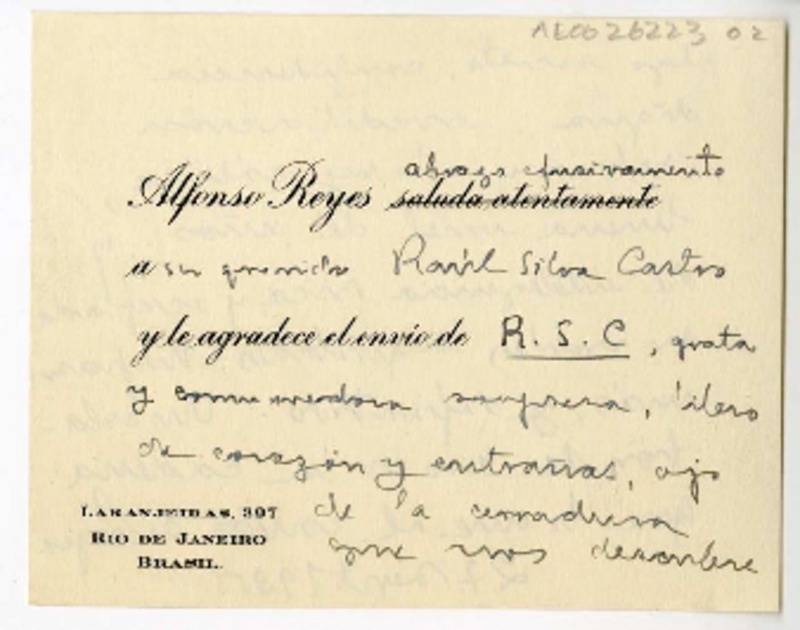 AE0026223 02
abraza efusivamente
Alfonso Reyes saluda atentamente
a su querido Raúl Silva Castro
y le agradece el envío de R. S. C, grata
y conmovedora sorpresa, libro
de corazón y entrañas, ojo
de la cerradura
que nos descubre
LARANJEIRAS, 397
RIO DE JANEIRO
BRASIL.